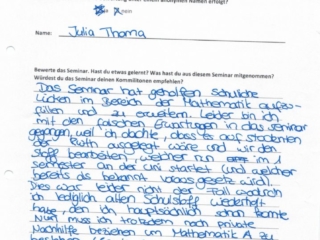 unter einem anonymen Namen erfolgt?
nein
Name: Julia Thoma
Bewerte das Seminar. Hast du etwas gelernt? Was hast du aus diesem Seminar mitgenommen?
Würdest du das Seminar deinen Kommilitonen empfehlen?
Das Seminar hat geholfen Schulische
Lücken im Bereich der Mathematik aufzu-
füllen und zu erweitern. Leider bin ich
mit den falschen Erwartungen in das Seminar
gegangen, weil ich dachte, dass es auf Studenten
der ausgelegt wäre und wir den
Stoff bearbeiten, welcher nun im 1
Semester der Uni startet und welcher
bereits als bekannt vorausgesetzt wird.
Dies war leider nicht der Fall wodurch
ich lediglich alten Schulstoff wiederholt
habe, den ich hauptsächlich schon kannte.
Nun muss ich trotzdem noch private
Nachhilfe beziehen um Mathematik A zu